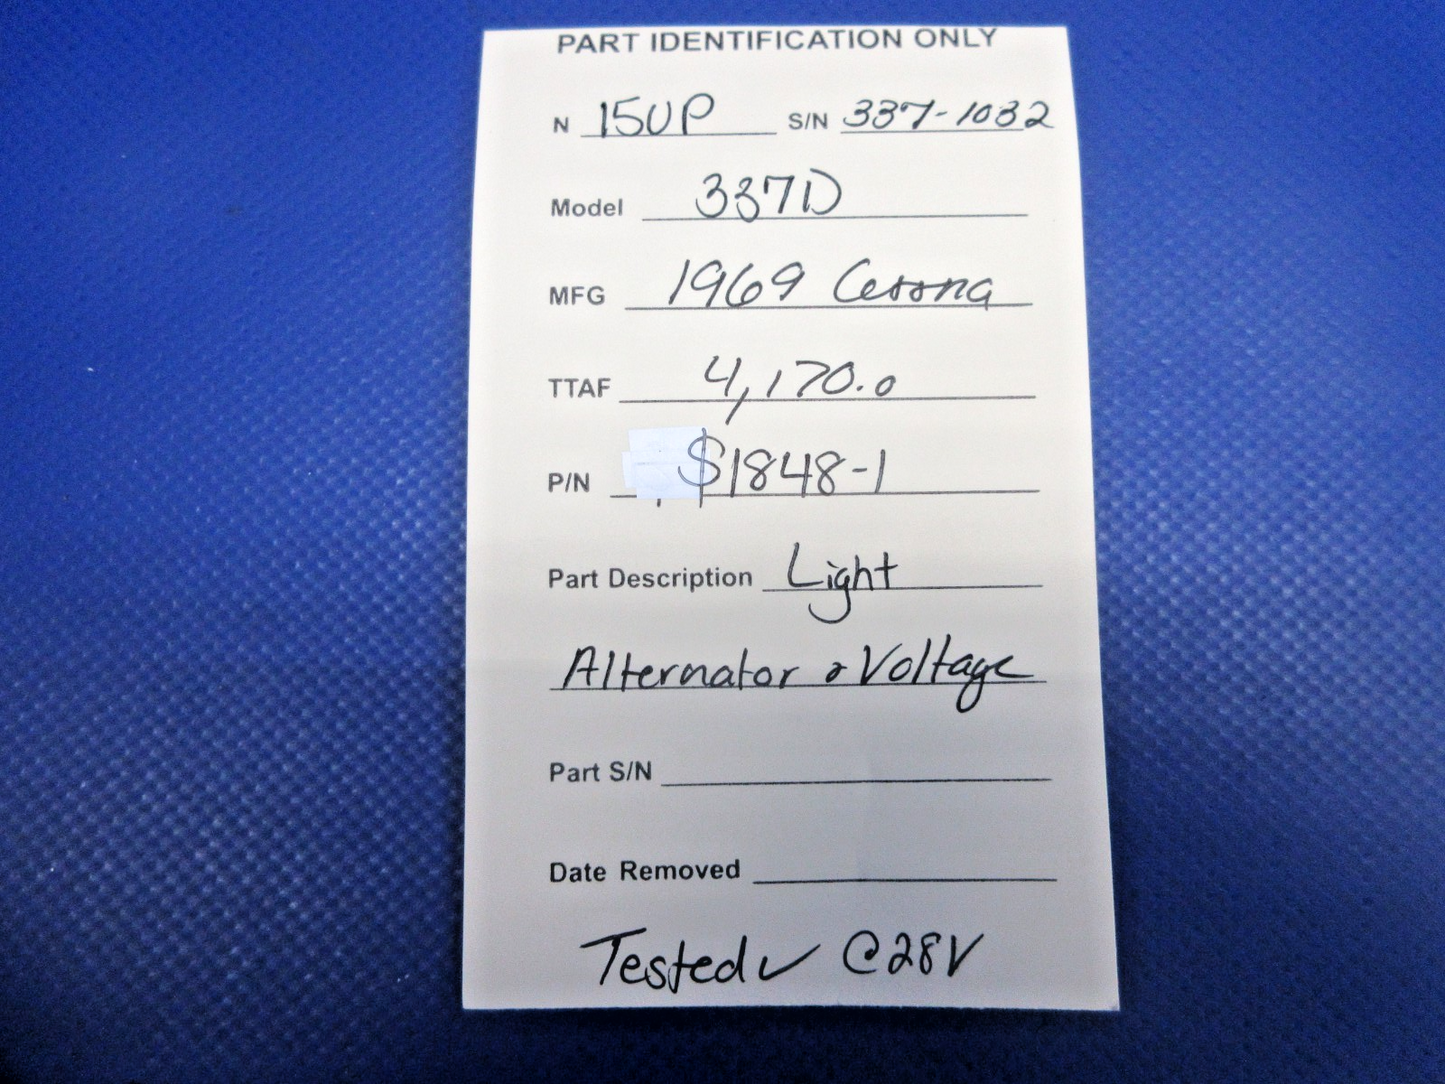 PART IDENTIFICATION ONLY
N 15UP S/N 337-1032
Model 337D
MFG 1969 Cessna
TTAF 4,170.0
P/N $1848-1
Part Description Light
Alternator & Voltage
Part S/N
Date Removed
Tested✓ @28V